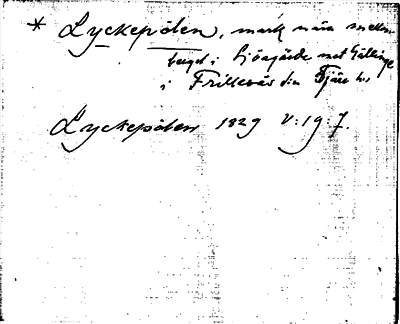 * Lyckepölen, mark nära mellan
berget i Sjögärde mot Gällinge
i Frillesås sn Fjäre hd.
Lyckepölen 1829 V:19:7.